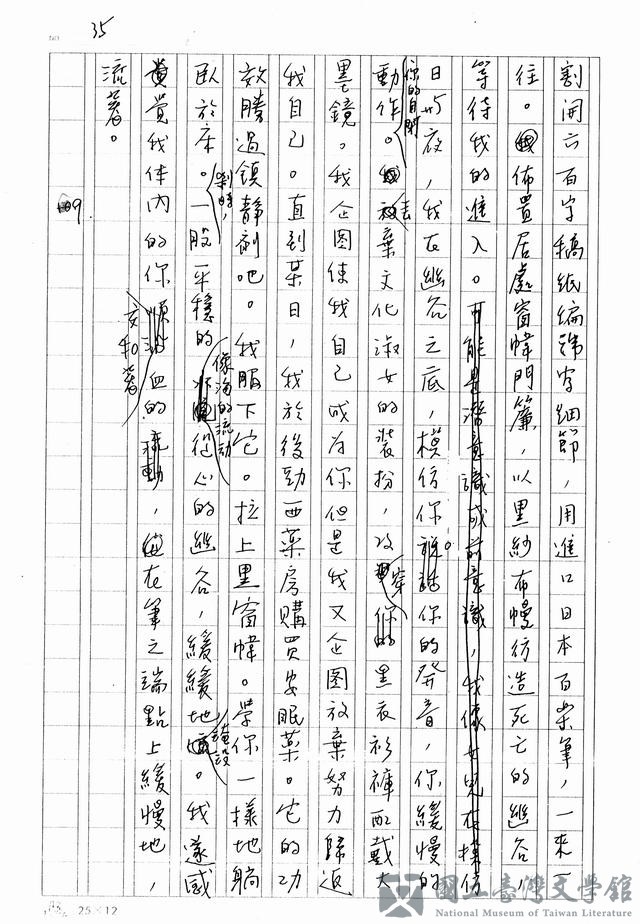 35
割開六百字稿紙編譯字細節,用進口日本百樂筆,一來一
往。佈置居處窗幃門簾,以黑紗布幔仿造死亡的幽谷,
等待我的進入。可能是潛意識或前意識,我像女兒在模仿
日與夜,我在幽谷之底,模仿你說話你的發音,你緩慢的
你的自閉
動作。放棄文化淑女的裝扮,改穿你的黑衣衫褲配戴大
去
墨鏡。我企圖使我自己成為你但是我又企圖放棄努力歸返
我自己。直到某日,我於後勁西藥房購買安眠藥。它的功
效勝過鎮靜劑吧。我服下它。拉上黑窗幃。學你一樣地躺
臥於床。霎時,一股平穩的像海的流動從心的幽谷,緩緩地鋪設。我遂感
覺我体內的你交和著血的流動,在筆之端點上緩慢地,
流著。
109.
25×12
國立臺灣文學館
National Museum of Taiwan Literature